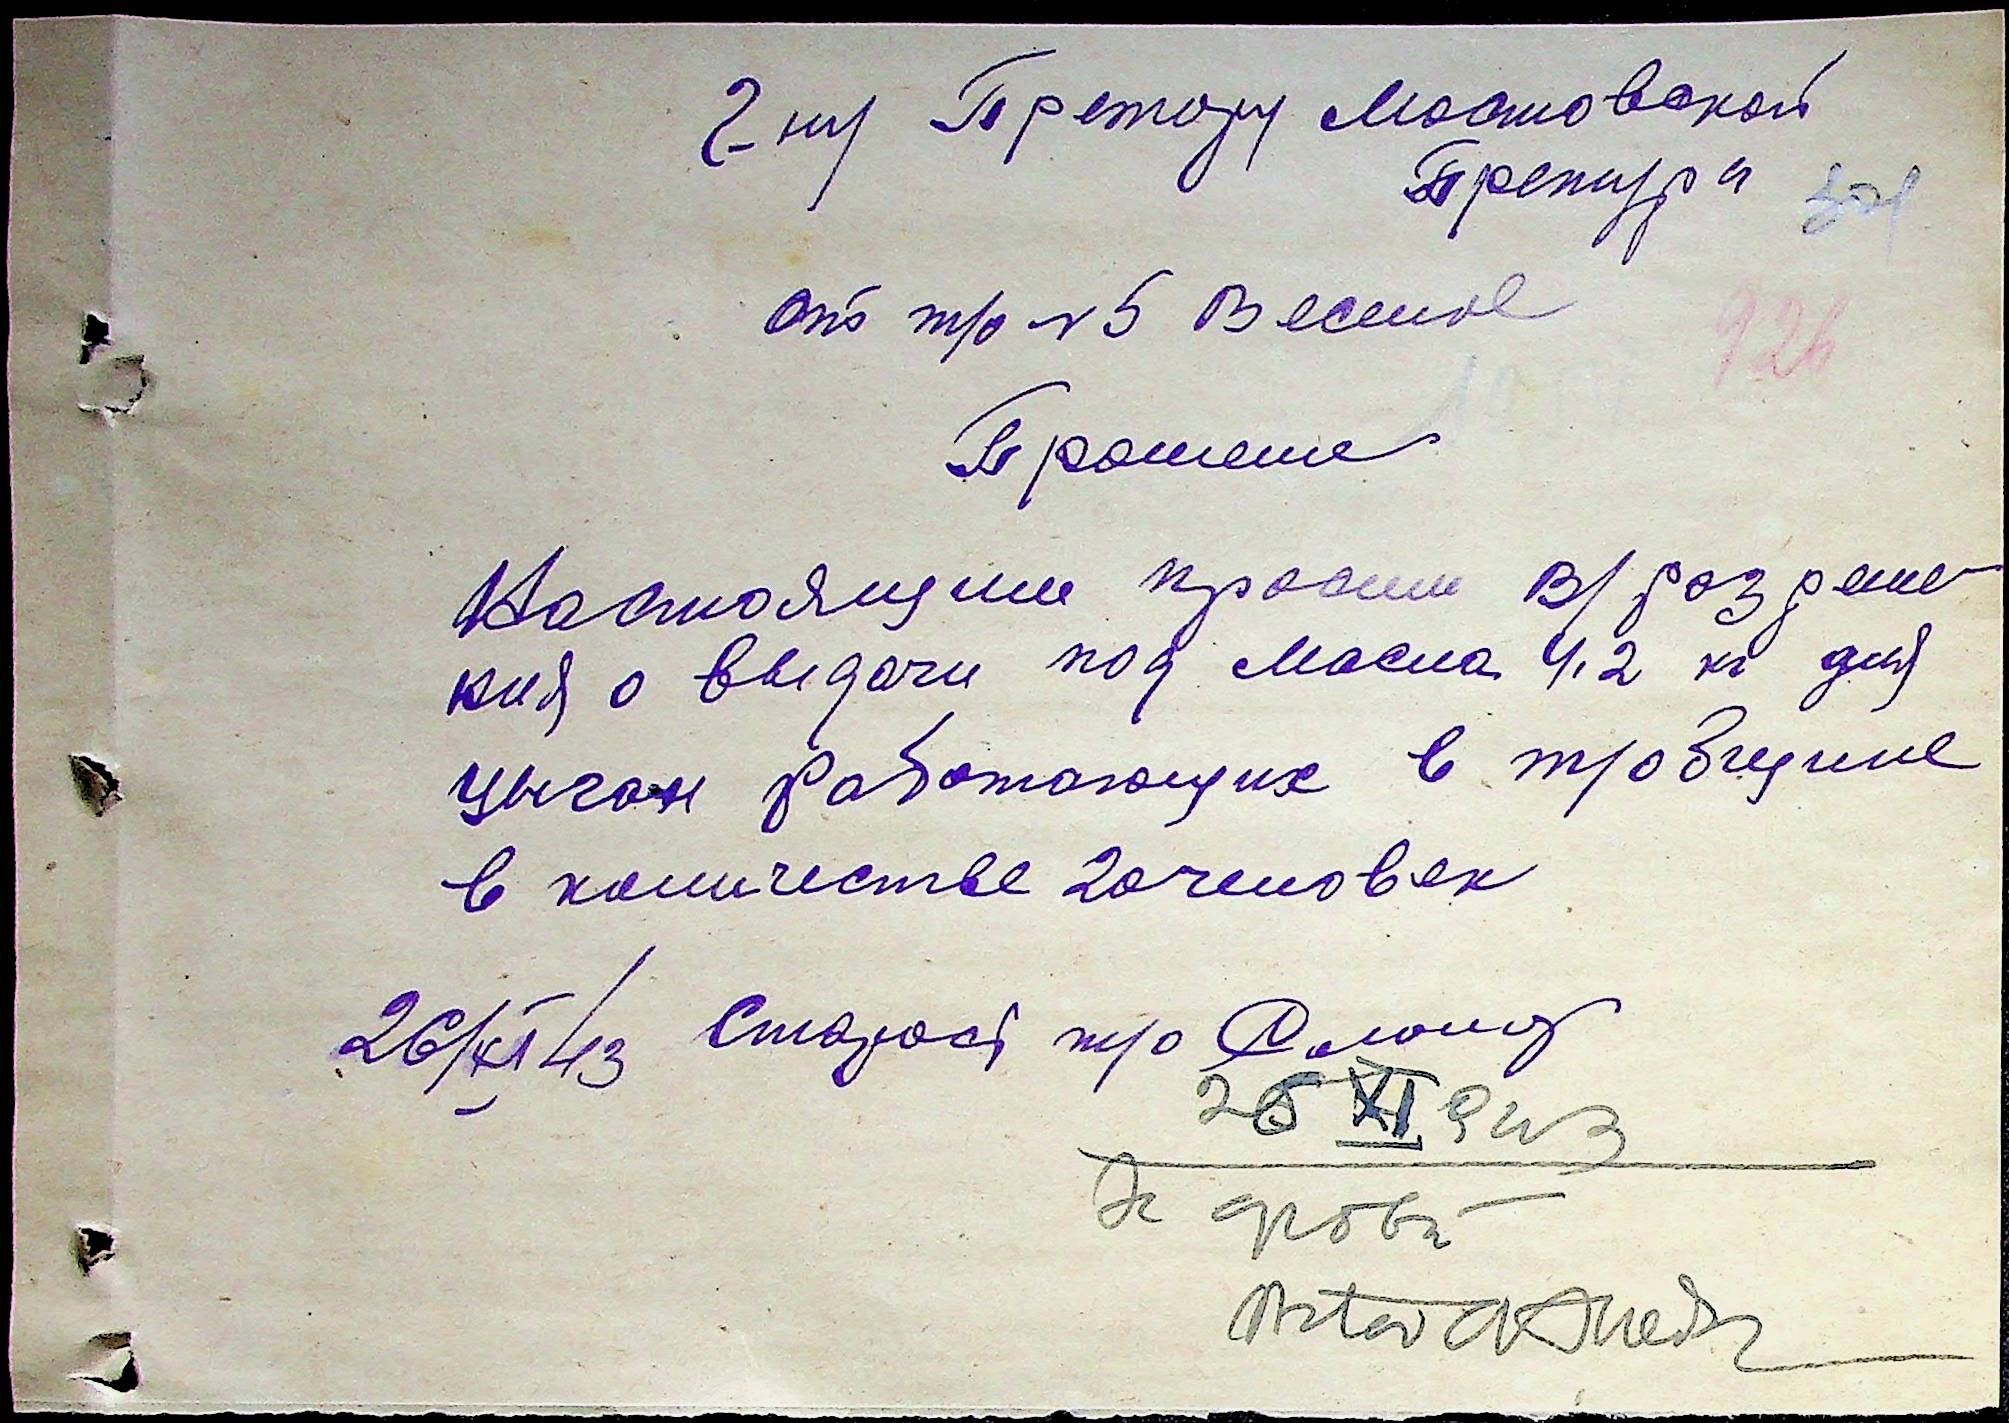 Г-ну Претору Мостовской
Претуры 301
926
от т/о №5 Веселое
Прошение
Настоящим просим В/ разреше-
ния о выдачи под масла 4,2 кг для
цыган работающих в т/общине
в количестве 20 человек
26/XI 43 Старост т/о
26 XI 943